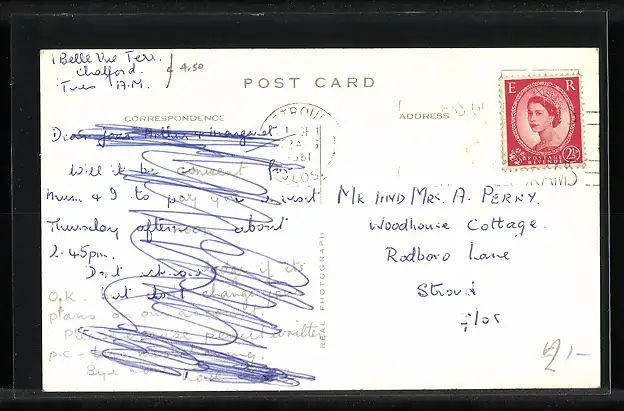 1 Belle Vue Terr.
Chalford.
Tues A.M.
4.50
POST CARD
CORRESPONDENCE
ADDRESS
STROUD
1961
GLOS
E R
POSTAGE
REVENUE
2½
Dear
Will it be convent for
Mum & I to pay you a visit
Thursday afternoon about
2.45pm.
Don't if its
O.K. but don't change your
plans on our account.
excuse pencil written
p.c.
Bye
REAL PHOTOGRAPH
Mr and Mrs. A. Perry.
Woodhouse Cottage.
Rodboro Lane
Stroud
Glos
£1-